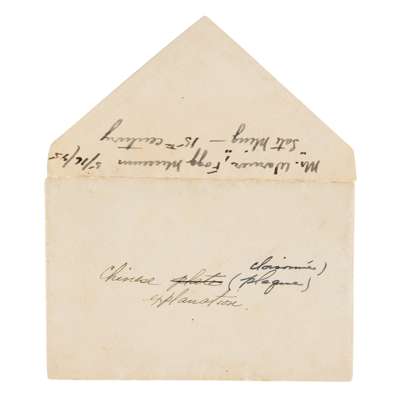 Mr. Warner, Fogg Museum 5/16/35
Late Ming — 15th century
cloisonné)
Chinese photos (plaque)
explanation.